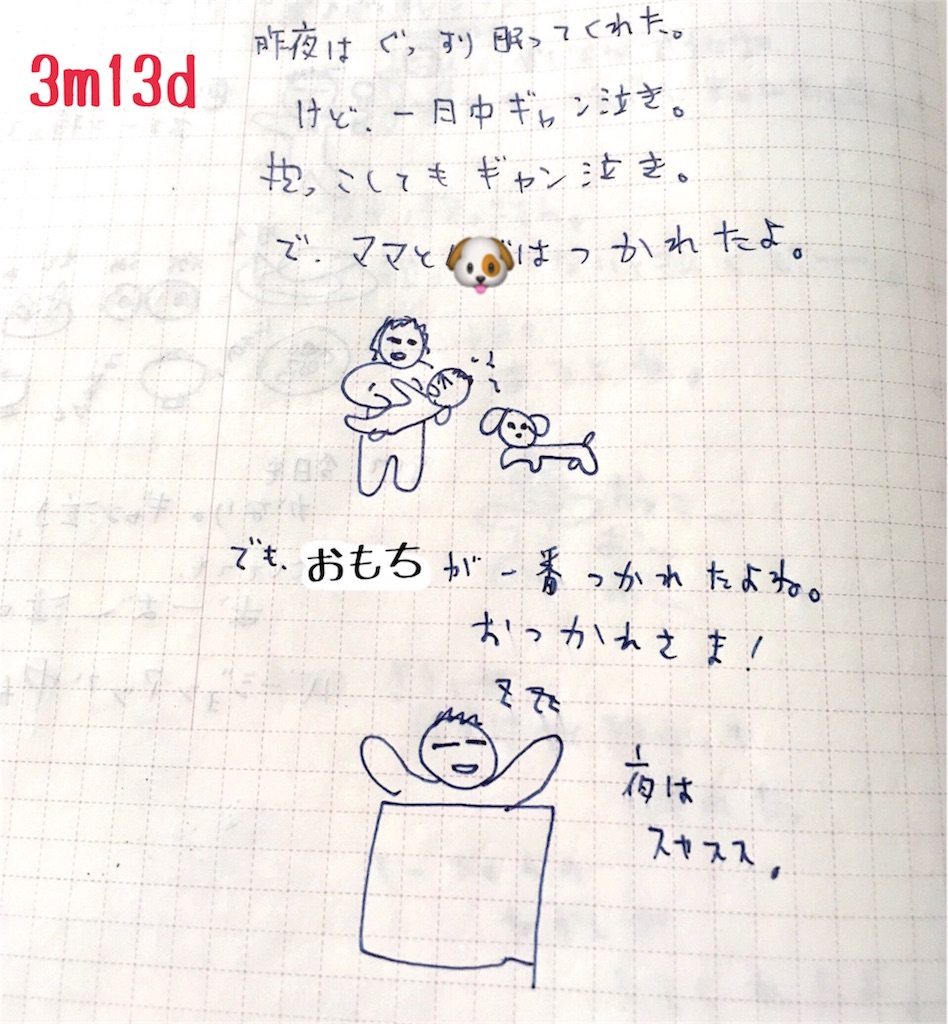 3m13d
昨夜は ぐっすり 眠ってくれた。
けど、一日中ギャン泣き。
抱っこしてもギャン泣き。
で、ママと はつかれたよ。
でも、おもちが一番つかれたよね。
おつかれさま！
z zz
夜は
スヤスス.
今日も
かなり。ギャン泣き